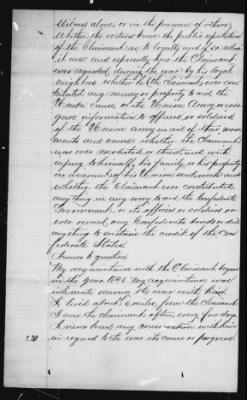 Witness alone, or in the presence of others,
Whether the witness knows the public reputation
of the Claimant as to loyalty and if so what
it was and especially how the Claimant
was regarded during the war by his loyal
neighbors whether he (the Claimant) ever con-
tributed any money or property to aid the
Union cause or the Union Army, or ever
gave information to officers or soldiers
of the Union army in aid of their move-
ments and causes whether the Claimant
was ever molested or threatened with
injury to himself, his family, or his property
on account of his Union sentiments and
whether the Claimant ever contributed
any thing in any way to aid the Confederate
Government or its officers or soldiers or
ever owned any Confederate bonds or did
any thing to sustain the credit of the Con-
federate States.
Answer to question
My acquaintance with the Claimant began
in the year 1848. My acquaintance was
intimate during the war with him
I lived about 5 miles from the claimant
I saw the claimant often every few days
I never had any conversation with him
in regard to the war its cause or progress.